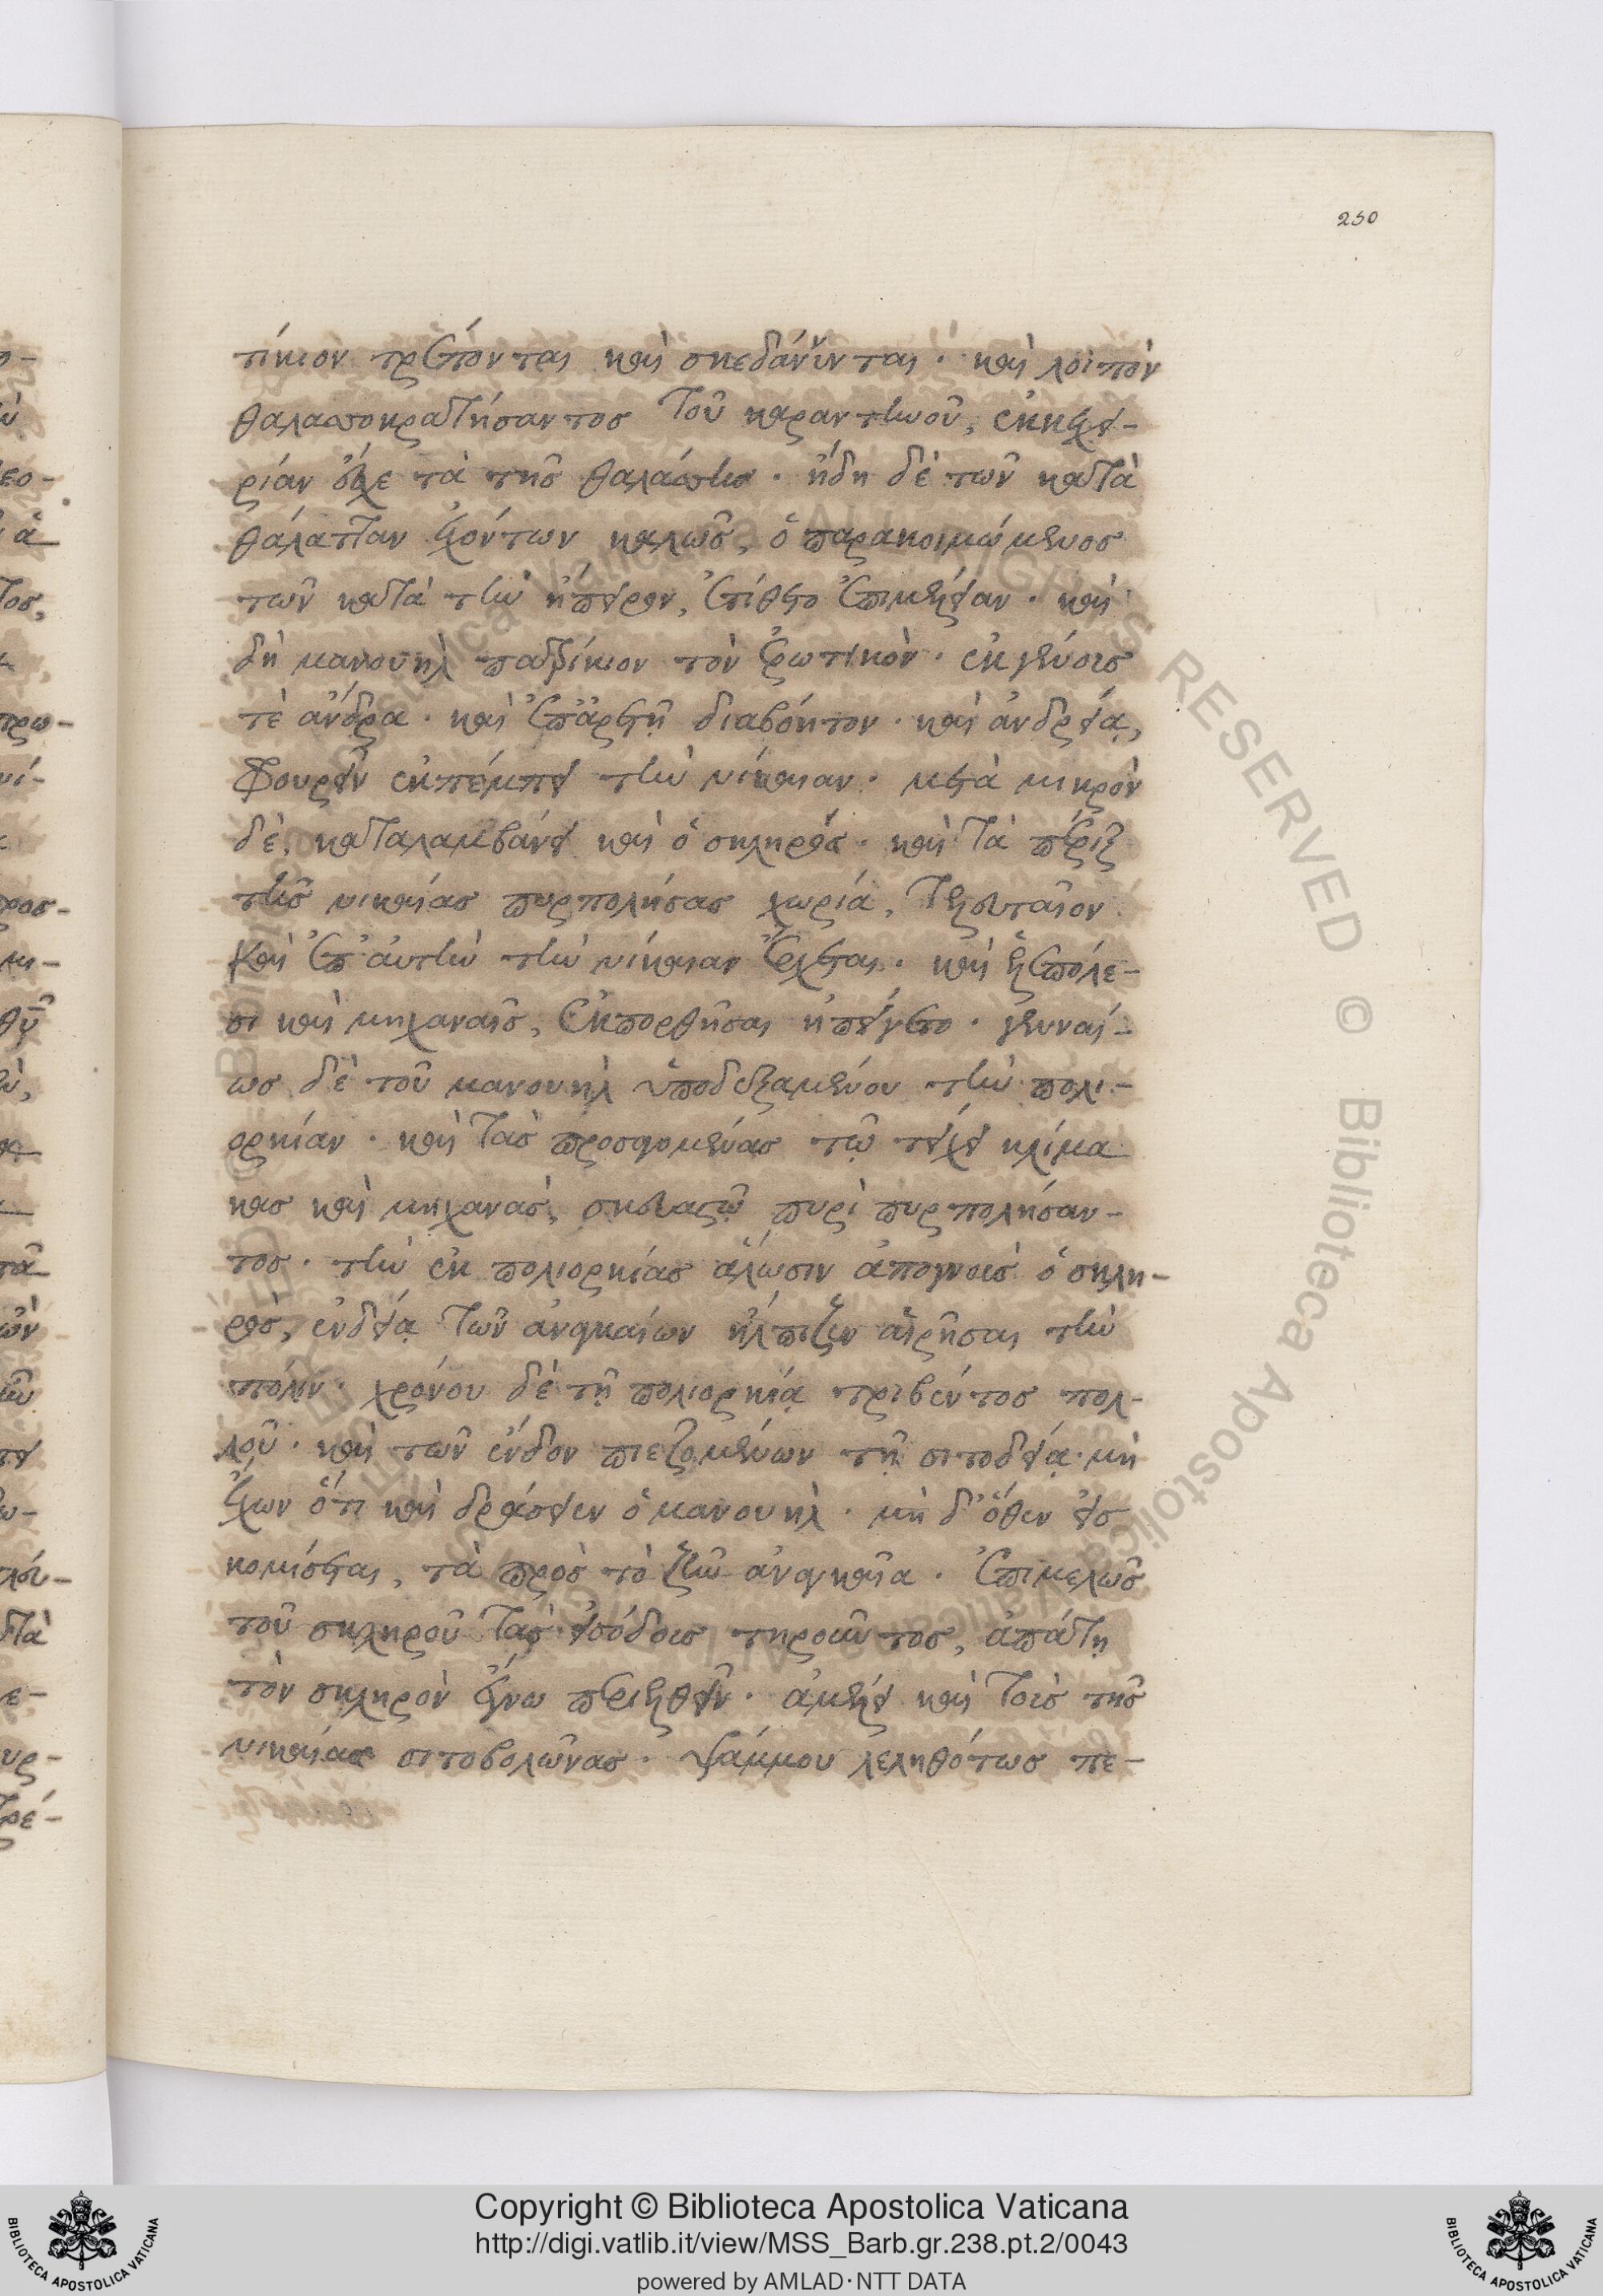 250
τίκιον τρέπονται καὶ σκεδάννυνται· καὶ λοιπὸν
θαλασσοκρατήσαντος τοῦ καραντηνοῦ, ἐκεχει-
ρίαν εἶχε τὰ τῆς θαλάσσης· ἤδη δὲ τῶν κατὰ
θάλατταν ἐχόντων καλῶς, ὁ παρακοιμώμενος
τῶν κατὰ τὴν ἤπειρον, ἐπέθετο ἐπιμέλειαν· καὶ
δὴ μανουὴλ πατρίκιον τὸν ἐρωτικὸν· ἐκ γένους
τὲ ἄνδρα· καὶ ἐπ' ἀρετῇ διαβόητον· καὶ ἀνδρείᾳ,
φουρεῖν ἐκπέμπει τὴν νίκαιαν· μετὰ μικρὸν
δὲ, καταλαμβάνει καὶ ὁ σκληρὸς· καὶ τὰ πέριξ
τῆς νικαίας πυρπολήσας χωρία, τελευταῖον
καὶ ἐπ' αὐτὴν τὴν νίκαιαν ἔρχεται· καὶ ἑλεπόλε-
σι καὶ μηχαναῖς, ἐκπορθῆσαι ἠπείγετο· γενναί-
ως δὲ τοῦ μανουὴλ ὑποδεξαμένου τὴν πολι-
ορκίαν· καὶ τὰς προσαγομένας τῷ τείχει κλίμα
κας καὶ μηχανὰς, σκευαστῷ πυρὶ πυρπολήσαν-
τος· τὴν ἐκ πολιορκίας ἅλωσιν ἀπογνοὺς ὁ σκλη-
ρὸς, ἐνδείᾳ τῶν ἀναγκαίων ἤλπιζεν αἱρῆσαι τὴν
πόλιν· χρόνου δὲ τῇ πολιορκίᾳ τριβέντος πολ-
λοῦ· καὶ τῶν ἔνδον πιεζομένων τῇ σιτοδείᾳ· μὴ
ἔχων ὅτι καὶ δράσειεν ὁ μανουὴλ· μὴ δ' ὅθεν εἰσ
κομίσεται, τὰ πρὸς τὸ ζῆν ἀναγκαῖα· ἐπιμελῶς
τοῦ σκληροῦ τὰς εἰσόδους τηροῦντος, ἀπάτῃ
τὸν σκληρὸν ἔγνω περιελθεῖν· ἀμέλει καὶ τοὺς τῆς
νικαίας σιτοβολῶνας· ψάμμου λεληθότως πε-
Copyright © Biblioteca Apostolica Vaticana
http://digi.vatlib.it/view/MSS_Barb.gr.238.pt.2/0043
powered by AMLAD·NTT DATA